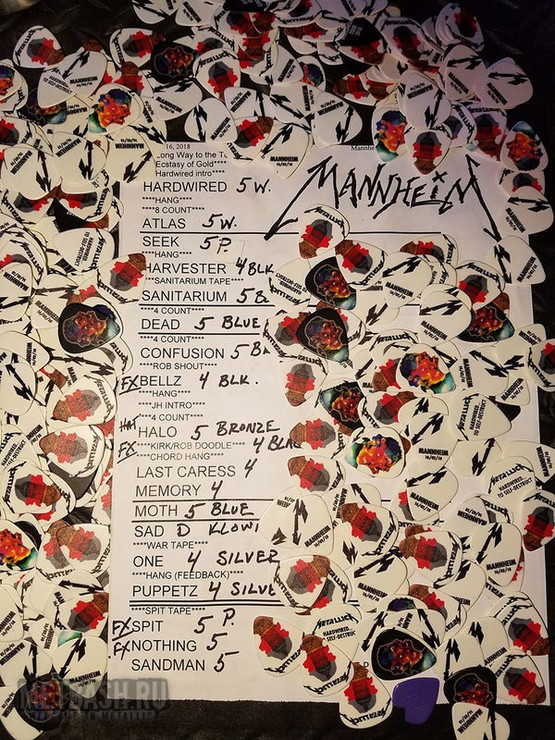 16, 2018
Mannhe
Long Way to the T
Ecstasy of Gold****
Hardwired intro****
MANNHEIM
HARDWIRED 5 W.
****HANG****
****8 COUNT****
ATLAS 5 W.
SEEK 5 P.
****HANG****
HARVESTER 4 BLK
**SANITARIUM TAPE****
SANITARIUM 5 B
****4 COUNT****
DEAD 5 BLUE
****4 COUNT****
CONFUSION 5 B
****ROB SHOUT****
FX BELLZ 4 BLK.
****HANG****
****JH INTRO****
****4 COUNT****
HALO 5 BRONZE
FX ****KIRK/ROB DOODLE**** 4 BLA
****CHORD HANG****
LAST CARESS 4
MEMORY 4
MOTH 5 BLUE
SAD D KLOW
****WAR TAPE****
ONE 4 SILVER
****HANG (FEEDBACK)****
PUPPETZ 4 SILVE
****SPIT TAPE****
FX SPIT 5 P.
FX NOTHING 5
SANDMAN 5
METALLICA
HARDWIRED
TO SELF-DESTRUCT
MANNHEIM
METBASH.RU